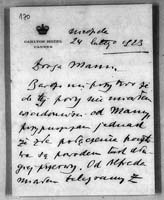 170
CARLTON HOTEL
CANNES
24 lutego 1923
Droga Mamo,
Bardzo mi przykro że
do tej pory nie miałem
wiadomości od Mamy
przypuszczam jednak
że złe połączenie poczt
są powodem tak dłu
Od Alfreda
miałem telegramy z